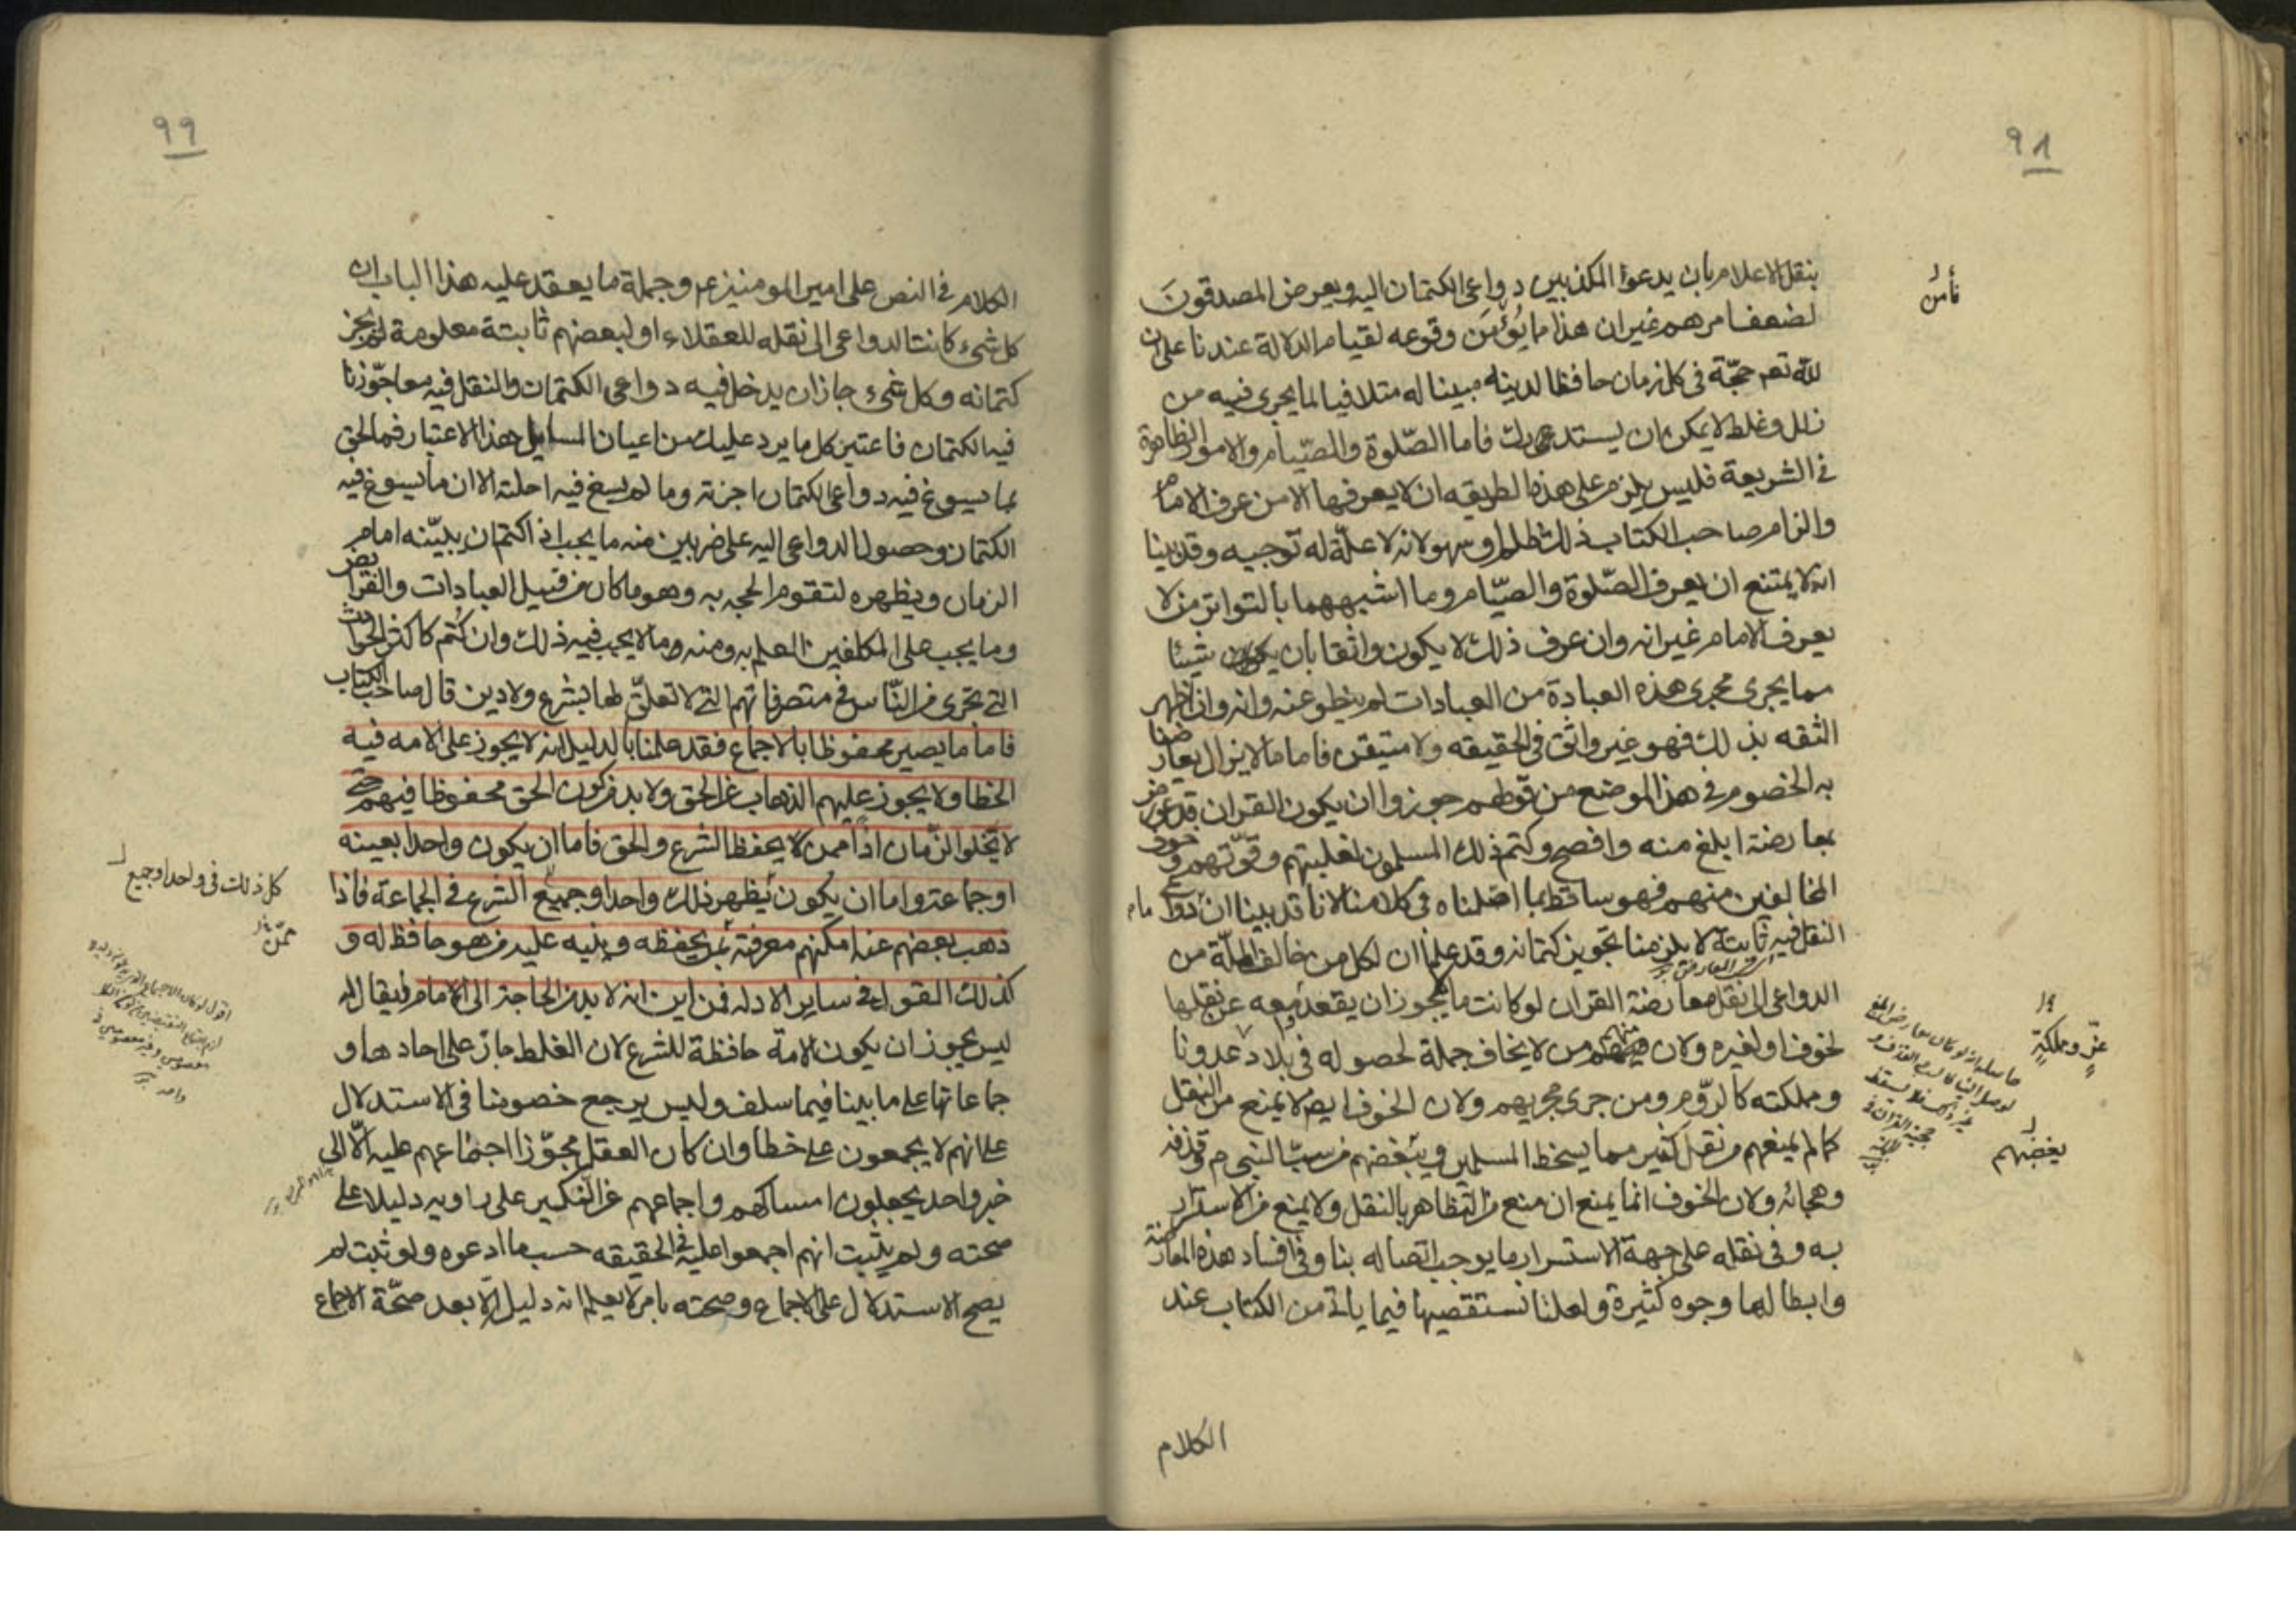 ٩٨
بنقل الاعلام بان يدعوا المكذبين دواعى الكتمان اليه ويعرض المصدقون
لضعف امرهم غير ان هذا ما يُؤمَن وقوعه لقيام الدلالة عندنا على ان
لله تعم حجّة فى كل زمان حافظا لدينه مبينا له متلافيا لما يجرى فيه من
زلل وغلط لا يمكن ان يستدعى بان فاما الصّلوة والصّيام والامور الظاهرة
فى الشريعة فليس يلزم على هذه الطريقه ان لا يعرفها الا من عرف الامام
والزام صاحب الكتاب ذلك ظلم او سهو لانه لا علّة له توجبه وقد بينا
انه لا يمتنع ان يعرف الصّلوة والصيّام وما اشبههما بالتواتر من لا
يعرف الامام غير انه وان عرف ذلك لا يكون واثقا بان يكون شيئا
مما يجرى مجرى هذه العبادة من العبادات لم ينطو عنه وانه وان اظهر
الثقه بذلك فهو غير واثق فى الحقيقه ولا متيقن فاما ما لا يزال يعارضنا
به الخصوم فى هذا الموضع من قولهم جوزوا ان يكون القران قد عورض
بمعارضة ابلغ منه وافصح وكتم ذلك المسلمون لغلبتهم وقوّتهم وخوف
المخالفين منهم فهو ساقط بما اصّلناه فى كلامنا لانا قد بينا ان دواعى
النقل فيه ثابتة لا يلزمنا تجويز كتمانه وقد علمنا ان لكل من خالف الملّة من
الدواعى الى نقل معارضة القران لو كانت ما يجوز ان يقعد معه عن نقلها
لخوف او لغيره ولان منهم من لا يخاف جملة لحصوله فى بلاد عدونا
ومملكته كالرّوم ومن جرى مجريهم ولان الخوف ايض لا يمنع من النقل
كما لم يمنعهم من نقل كثير مما يسخط المسلمين ويبغضهم من سبّ النبى ص وقذفه
وهجائه ولان الخوف انما يمنع ان منع من التظاهر بالنقل ولا يمنع من الاستسرار
به وفى نقله على جهة الاستسرار ما يوجب اتصاله بنا وفى افساد هذه المعارضة
وابطالها وجوه كثيرة ولعلنا نستقصيها فيما ياتى من الكتاب عند
الكلام
نأمن
عزّ ومملكته
يغضبهم
٩٩
الكلام فى النص على امير المومنين ع وجملة ما يعقد عليه هذا الباب ان
كل شىء كانت الدواعى الى نقله للعقلاء او لبعضهم ثابتة معلومة لم يجز
كتمانه وكل شىء جاز ان يدخل فيه دواعى الكتمان والنقل فيه معا جوّزنا
فيه الكتمان فاعتبر كل ما يرد عليك من اعيان المسايل بهذا الاعتبار فما لحق
بما يسوغ فيه دواعى الكتمان اجزته وما لم يسغ فيه احلته الا ان ما يسوغ فيه
الكتمان وحصول الدواعى اليه على ضربين منه ما يجب اذا كتم ان يبيّنه امام
الزمان ويظهره لتقوم الحجه به وهو ما كان من قبيل العبادات والفرايض
وما يجب على المكلفين العلم به ومنه ما لا يجب فيه ذلك وان كُتم كاكثر الحوادث
التى تجرى من النّاس فى متصرفاتهم التى لا تعلّق لها بشرع ولا دين قال صاحب الكتاب
فاما ما يصير محفوظا بالاجماع فقد علمنا بالدليل انه لا يجوز على الامه فيه
الخطا ولا يجوز عليهم الذهاب عن الحق ولا بد من كون الحق محفوظا فيهم حتى
لا تخلوا الزّمان اذا ممن يحفظ الشرع والحق فاما ان يكون واحدا بعينه
او جماعة واما ان يكون يظهر ذلك واحدا وجميع الشرع فى الجماعة فاذا
ذهب بعضهم عنه امكنهم معرفة ثمن يحفظه وينبه عليه من هو حافظ له و
كذلك القول فى ساير الادله فمن اين انه لا بد من الحاجة الى الامام فيقال له
ليس يجوز ان يكون الامة حافظة للشرع لان الغلط جاز على احادها و
جماعاتها على ما بينا فيما سلف وليس يرجع خصومنا فى الاستدلال
على انهم لا يجمعون على خطا وان كان العقل مجوّزا اجتماعهم عليه الّا الى
خبر واحد يجعلون امساكهم واجماعهم عن النكير على راويه دليلا على
صحته ولم يثبت انهم اجمعوا عليه فى الحقيقه حسب ما ادعوه ولو ثبت لم
يصح الاستدلال على الاجماع وصحته بامر لا يعلم انه دليل الّا بعد صحّة الاجماع
كل ذلك فى واحد او جميع
ممّن